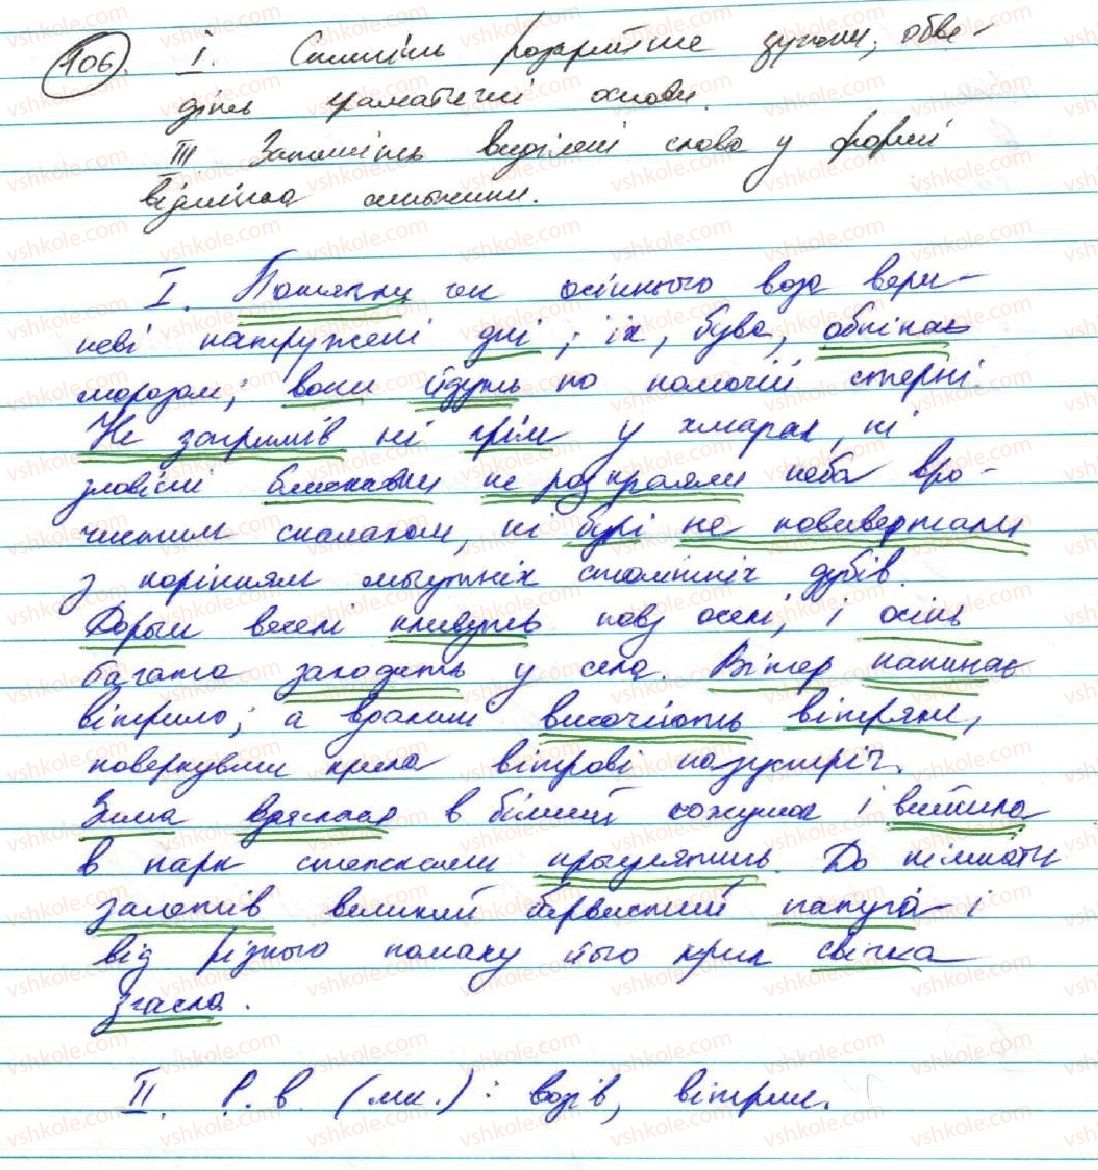 106. I. Спишіть розкрийте дужки, обве-
діть граматичні основи.
III Запишіть виділені слова у формі
відмінка множини.
I. Потягли чек осіннього воза вере-
неві натружені дні; їх, бува, обпікає
морозом; вони йдуть по колючій стерні.
Не загримів ні грім у хмарах, ні
зловісні блискавки не розкраяли неба вро-
чистим спалахом, ні бурі не повивертали
з корінням могутніх столітніх дубів.
Форми веселі пливуть повз оселі, і осінь
багато заходить у села. Вітер напинає
вітрило; а вдалині височіють вітряки,
повернувши крила вітрові назустріч.
Зима вдяглася в білий кожушок і вийшла
в парк стежками прогулятись. До кімнати
залетів великий барвистий папуга і
від різного помаху його крил свічка
згасла.
II. Р. в. (мн.): возів, вітрил.